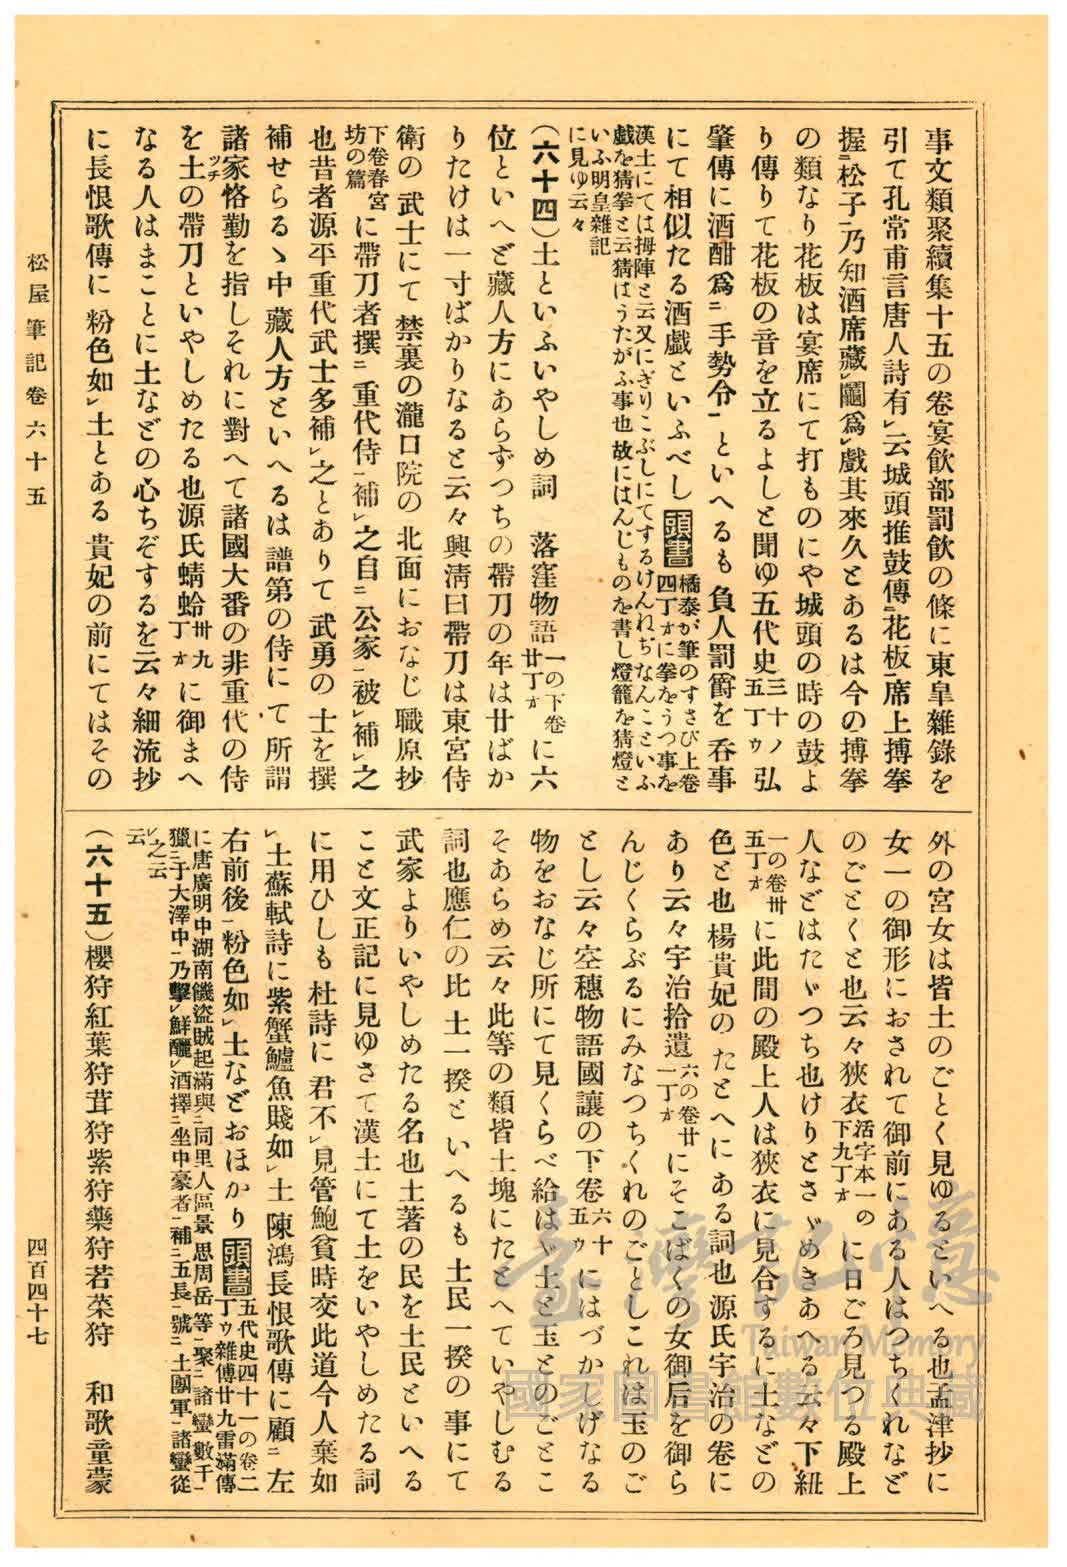 事文類聚續集十五の卷宴飮部罰飮の條に東皐雜錄を
引て孔常甫言唐人詩有㆑云城頭推鼓傳㆓花板㆒席上搏拳
握㆓松子㆒乃知酒席藏㆑鬮爲㆑戲其來久とあるは今の搏拳
の類なり花板は宴席にて打ものにや城頭の時の鼓よ
り傳りて花板の音を立るよしと聞ゆ五代史三十ノ五丁ウ弘
肇傳に酒酣爲㆓手勢令㆒といへるも負人罰爵を呑事
にて相似たる酒戲といふべし頭書橘泰が筆のすさび上卷四丁オに拳をうつ事を
漢土にては拇陣と云又にぎりこぶしにてするけんねぢなんこといふ
戲を猜拳と云猜はうたがふ事也故にはんじものを書し燈籠を猜燈と
いふ明皇雜記
に見ゆ云々
(六十四)土といふいやしめ詞 落窪物語一の下卷廿丁オに六
位といへど藏人方にあらずつちの帶刀の年は廿ばか
りたけは一寸ばかりなると云々興淸曰帶刀は東宮侍
衛の武士にて禁裏の瀧口院の北面におなじ職原抄
下卷春宮坊の篇に帶刀者撰㆓重代侍㆒補㆑之自㆓公家㆒被㆑補㆑之
也昔者源平重代武士多補㆑之とありて武勇の士を撰
補せらるゝ中藏人方といへるは譜第の侍にて所謂
諸家恪勤を指しそれに對へて諸國大番の非重代の侍
を土ツチの帶刀といやしめたる也源氏蜻蛉卅九丁オに御まへ
なる人はまことに土などの心ちぞするを云々細流抄
に長恨歌傳に粉色如㆑土とある貴妃の前にてはその
外の宮女は皆土のごとく見ゆるといへる也孟津抄に
女一の御形におされて御前にある人はつちくれなど
のごとくと也云々狹衣活字本一の下九丁オに日ごろ見つる殿上
人などはたゞつち也けりとさゞめきあへる云々下紐
一の卷卅五丁オに此間の殿上人は狹衣に見合するに土などの
色と也楊貴妃のたとへにある詞也源氏宇治の卷に
あり云々宇治拾遺六の卷廿一丁オにそこばくの女御后を御ら
んじくらぶるにみなつちくれのごとしこれは玉のご
とし云々空穗物語國讓の下卷六十五ウにはづかしげなる
物をおなじ所にて見くらべ給はゞ土と玉とのごとこ
そあらめ云々此等の類皆土塊にたとへていやしむる
詞也應仁の比土一揆といへるも土民一揆の事にて
武家よりいやしめたる名也土著の民を土民といへる
こと文正記に見ゆさて漢土にて土をいやしめたる詞
に用ひしも杜詩に君不㆑見管鮑貧時交此道今人棄如
㆑土蘇軾詩に紫蟹鱸魚賤如㆑土陳鴻長恨歌傳に顧㆓左
右前後㆒粉色如㆑土などおほかり頭書五代史四十一の卷二丁ウ雜傳廿九雷滿傳
に唐廣明中湖南饑盜賊起滿與㆓同里人區景思周岳等㆒聚㆓諸蠻數千㆒
獵㆓于大澤中㆒乃擊㆑鮮釃㆑酒擇㆓坐中豪者㆒補㆓五長㆒號㆓土團軍㆒諸蠻從
㆑之云云
(六十五)櫻狩紅葉狩茸狩紫狩藥狩若菜狩 和歌童蒙
松屋筆記卷六十五
四百四十七
臺灣記憶
Taiwan Memory
國家圖書館數位典藏